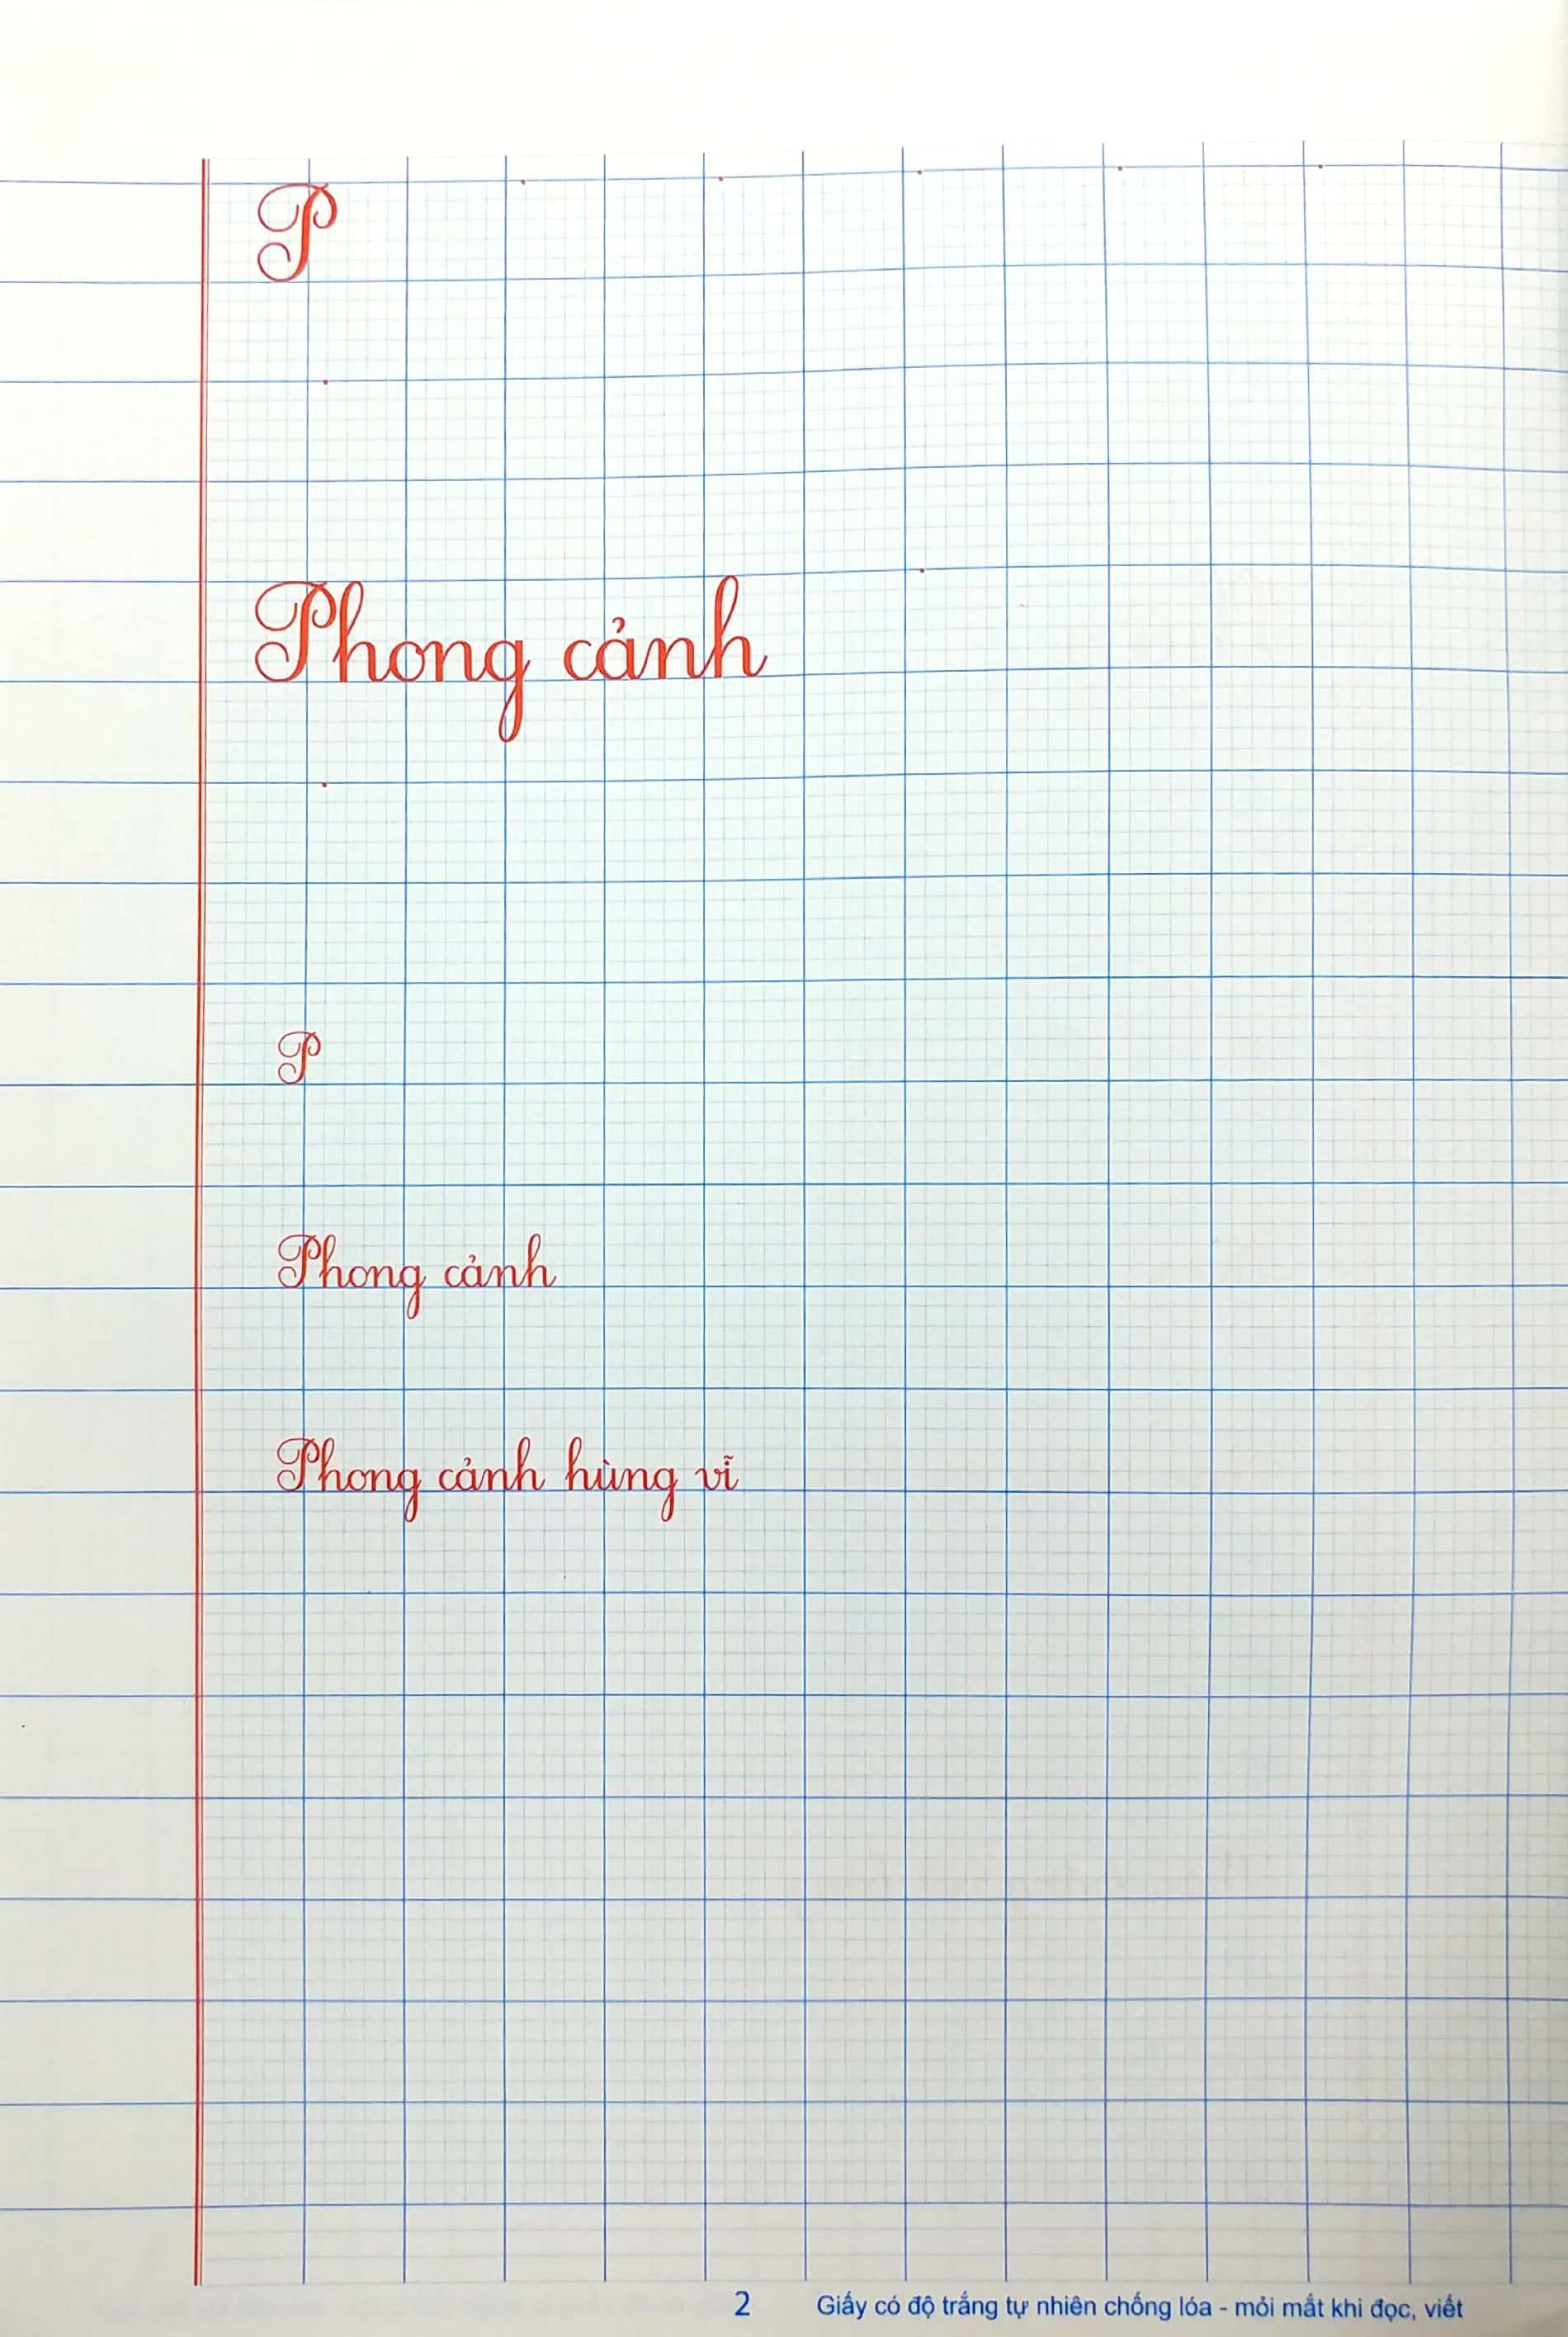 P
Phong cảnh
P
Phong cảnh
Phong cảnh hùng vĩ
2 Giấy có độ trắng tự nhiên chống lóa - mỏi mắt khi đọc, viết